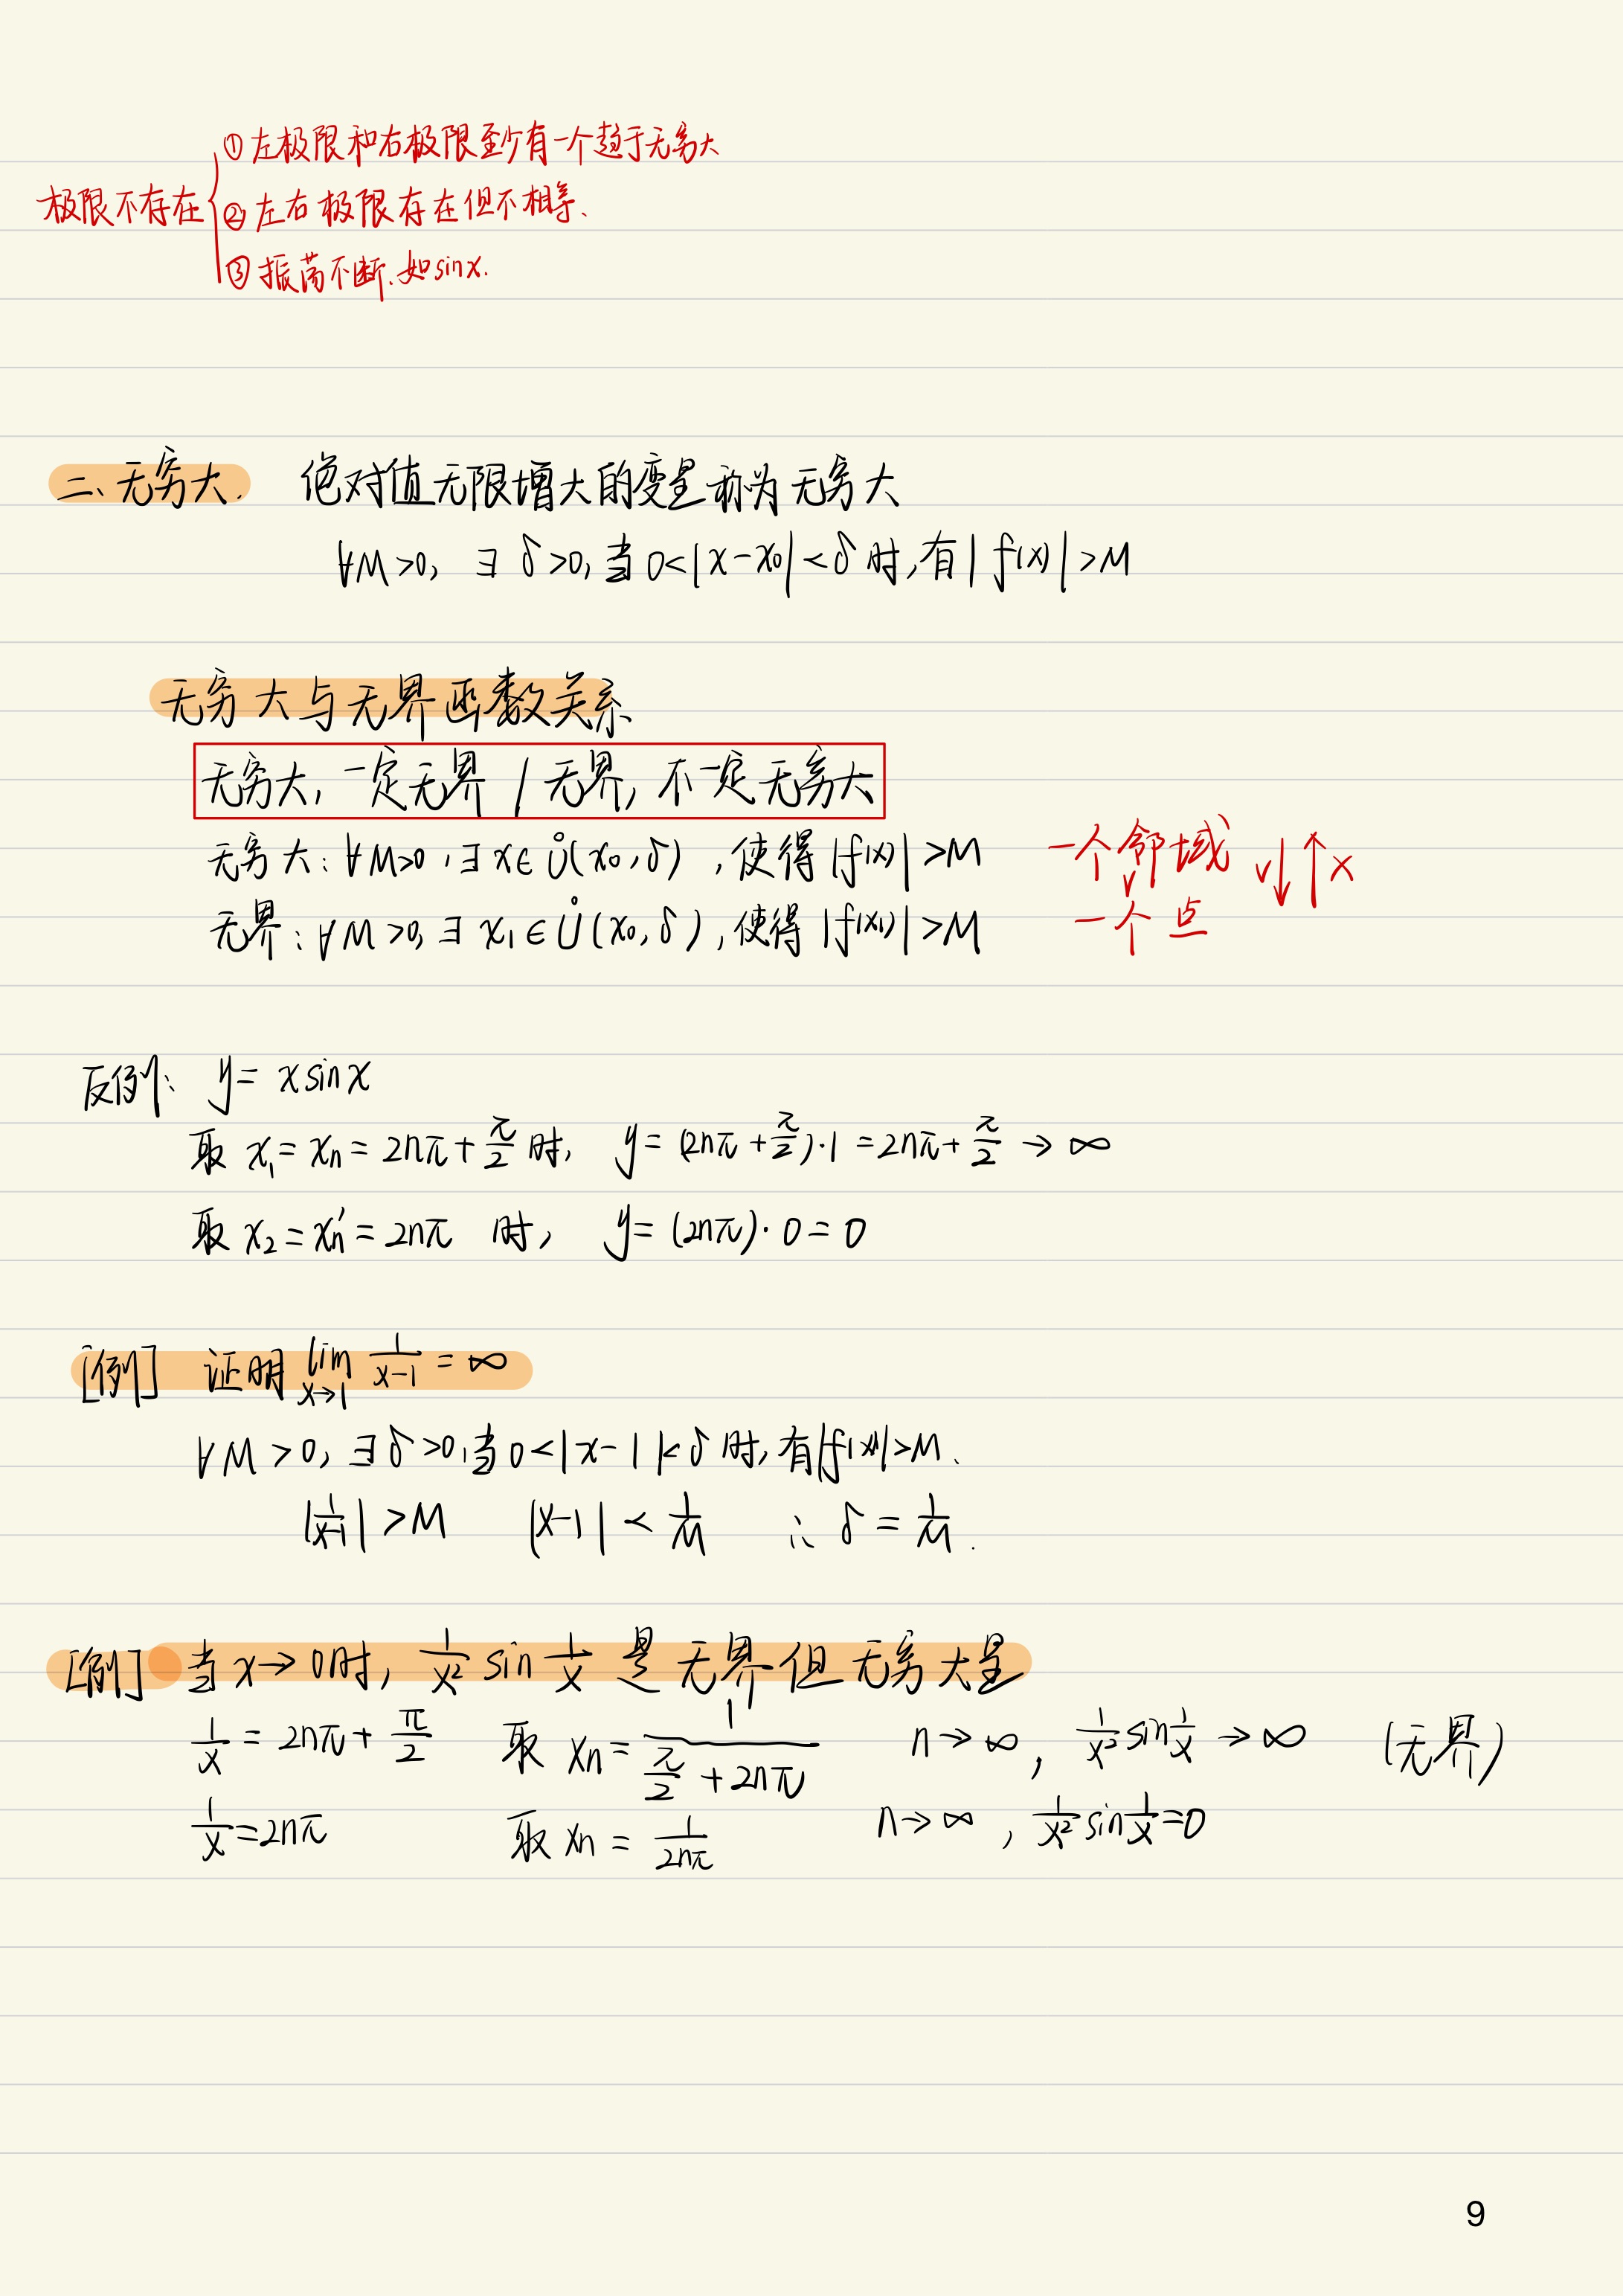 极限不存在
①左极限和右极限至少有一个趋于无穷大
②左右极限存在但不相等、
③振荡不断、如sinx.
二、无穷大. 绝对值无限增大的变量称为无穷大
∀M>0, ∃δ>0, 当0<|x-x₀|<δ时, 有|f(x)|>M
无穷大与无界函数关系
无穷大, 一定无界 / 无界, 不一定无穷大
无穷大: ∀M>0, ∃x∈Ů(x₀,δ), 使得|f(x)|>M 一个邻域 ∨↓ ↑×
∨
无界: ∀M>0, ∃x₁∈Ů(x₀,δ), 使得|f(x₁)|>M 一个点
反例: y= xsinx
取 x₁=xn=2nπ+π/2 时, y=(2nπ+π/2)·1=2nπ+π/2→∞
取 x₂=xn′=2nπ 时, y=(2nπ)·0=0
[例] 证明 lim x→1 1/(x-1)=∞
∀M>0, ∃δ>0, 当0<|x-1|<δ时, 有|f(x)|>M、
|1/(x-1)|>M |x-1|<1/M ∴δ=1/M.
[例] 当x→0时, 1/x² sin 1/x 是无界但无穷大量
1/x=2nπ+π/2 取 xn=1/(π/2+2nπ) n→∞, 1/x² sin 1/x→∞ (无界)
1/x=2nπ 取 xn=1/2nπ n→∞, 1/x² sin 1/x=0
9